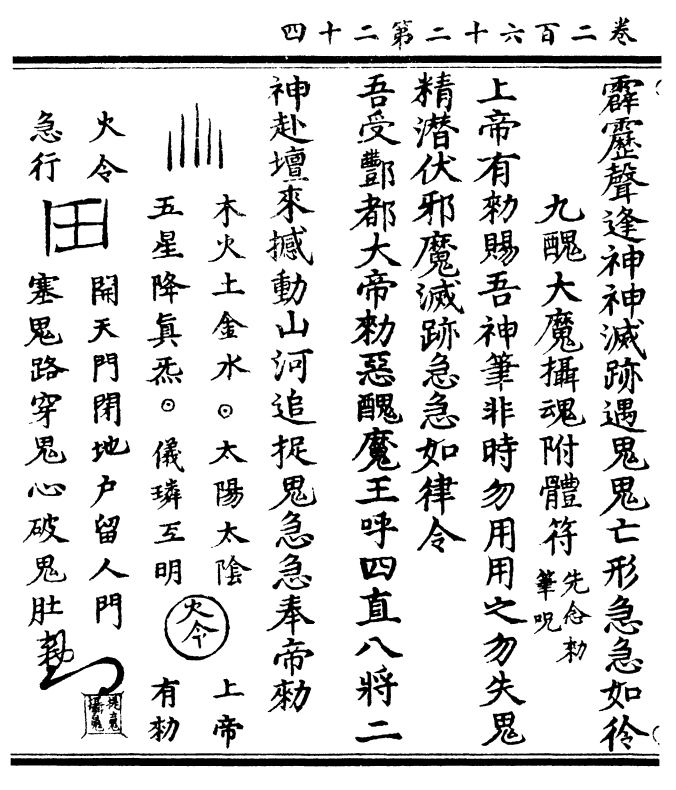 卷二百六十二第二十四
霹靂聲逢神神滅跡遇鬼鬼亡形急急如律令
九醜大魔攝魂附體符 先念勑筆呪
上帝有勑賜吾神筆非時勿用用之勿失鬼
精潛伏邪魔滅跡急急如律令
吾受酆都大帝勑惡醜魔王呼四直八將二
神赴壇來撼動山河追捉鬼急急奉帝勑
木火土金水⊙太陽太陰
五星降眞炁⊙儀璘互明
火令
上帝
有勑
火令
急行
田
開天門閉地户留人門
塞鬼路穿鬼心破鬼肚
勑